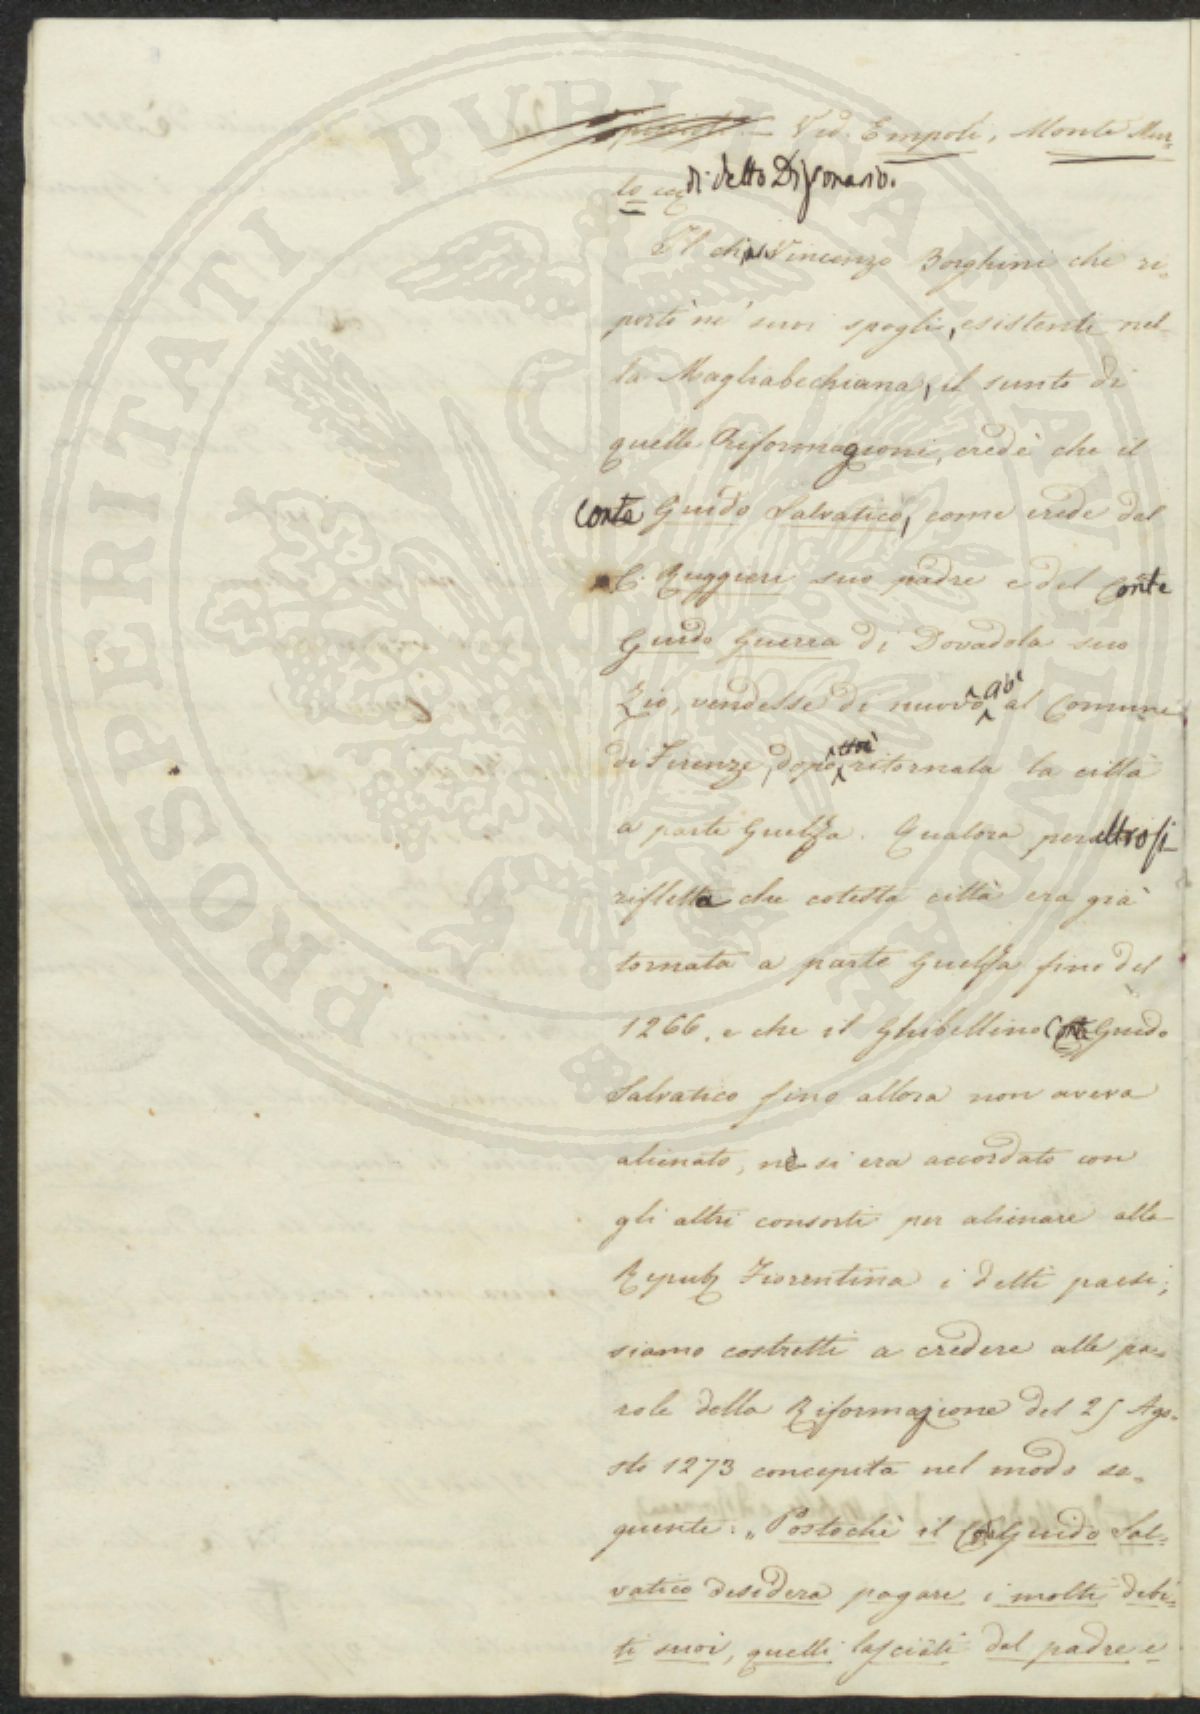 Vid. Empoli, Monte Mur-
lo ec. di detto Dizionario.
Il chi. Vincenzo Borghini che ri-
portò ne' suoi spogli, esistenti nel-
la Magliabechiana, il sunto di
quelle Riformagioni, credè che il
Conte Guido Salvatico, come erede del
C. Ruggieri suo padre e del Conte
Guido Guerra di Dovadola suo
Zio, vendesse di nuovo ciò al Comune
di Firenze, dopo cioè ritornata la città
a parte Guelfa. Qualora per altro si
rifletta che cotesta città era già
tornata a parte Guelfa fino del
1266, e che il Ghibellino Conte Guido
Salvatico fino allora non aveva
alienato, nè si era accordato con
gli altri consorti per alienare alla
Repub. Fiorentina i detti paesi;
siamo costretti a credere alle pa-
role della Riformagione del 25 Ago-
sto 1273 concepita nel modo se-
guente: „ Postochè il Cote Guido Sal-
vatico desidera pagare i molti debi-
ti suoi, quelli lasciati dal padre e
PROSPERITATI PUBLICAE AUGENDAE